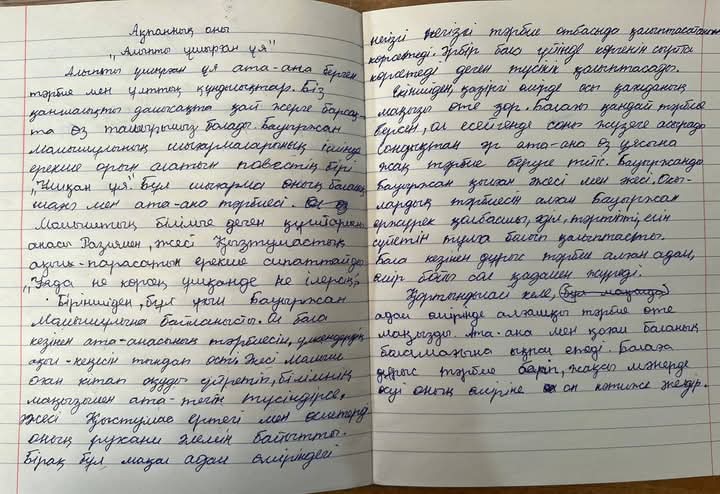 Ақпанның оны
"Алыпты ұшырған ұя"
Алыпты ұшырған ұя ата-ана берген
тәрбие мен ұлттық құндылықтар. Біз
қаншалықты дамысақта қай жерге барсақ-
та өз тамырымыз болады. Бауыржан
Момышұлының шығармаларының ішінде
ерекше орын алатын повестің бірі
"Ұшқан ұя". Бұл шығарма оның балалық
шағы мен ата-ана тәрбиесі.
Момыштың білімге деген құштарлығы
анасы Разиямен, әжесі Қызтумастың
ақыл-парасатын ерекше сипаттайды.
"Ұяда не көрсең ұшқанда не ілерсің"
Біріншіден, бұл ұғым Бауыржан
Момышұлына байланысты. Ол бала
кезінен ата-анасының тәрбиесін, үлкендердің
ақыл-кеңесін тыңдап өсті. Әкесі Момыш
оған кітап оқуды үйретіп, білімнің
маңызымен ата-тегін түсіндірсе,
әжесі Қызтумас ертегі мен өсиеттер
оның рухани әлемін байытты.
Бірақ бұл мақал адам өміріндегі
негізгі негізгі тәрбие отбасында қалыптасатынын
көрсетеді. Әрбір бала үйінде көргенін сыртта
көрсетеді деген түсінік қалыптасады.
Екіншіден, қазіргі өмірде осы қағиданың
маңызы өте зор. Баланы қандай тәрбие
берсең, ол есейгенде соны жүзеге асырады
Сондықтан әр ата-ана өз ұясына
жақ тәрбие беруге тиіс. Бауыржанды
Бауыржан қылған әкесі мен әжесі. Осы-
лардың тәрбиесін алған Бауыржан
ержүрек қолбасшы, әділ, тәртіпті, елін
сүйетін тұлға болып қалыптасты.
Бала кезінен дұрыс тәрбие алған адам,
өмір бойы сол қадамен жүреді.
Қортындылай келе, (бұл мақалда)
адам өмірінде алғашқы тәрбие өте
маңызды. Ата-ана мен қоғам баланың
болашағына ықпал етеді. Балаға
дұрыс тәрбие беріп, жақсы мәнерде
өсуі оның өміріне оң нәтиже әкелдір.